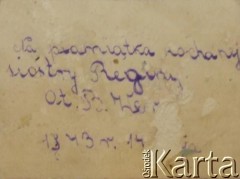 Na pamiątkę kochanej
siostry Reginy
Od
1943 r. 14
Ośrodek
Karta